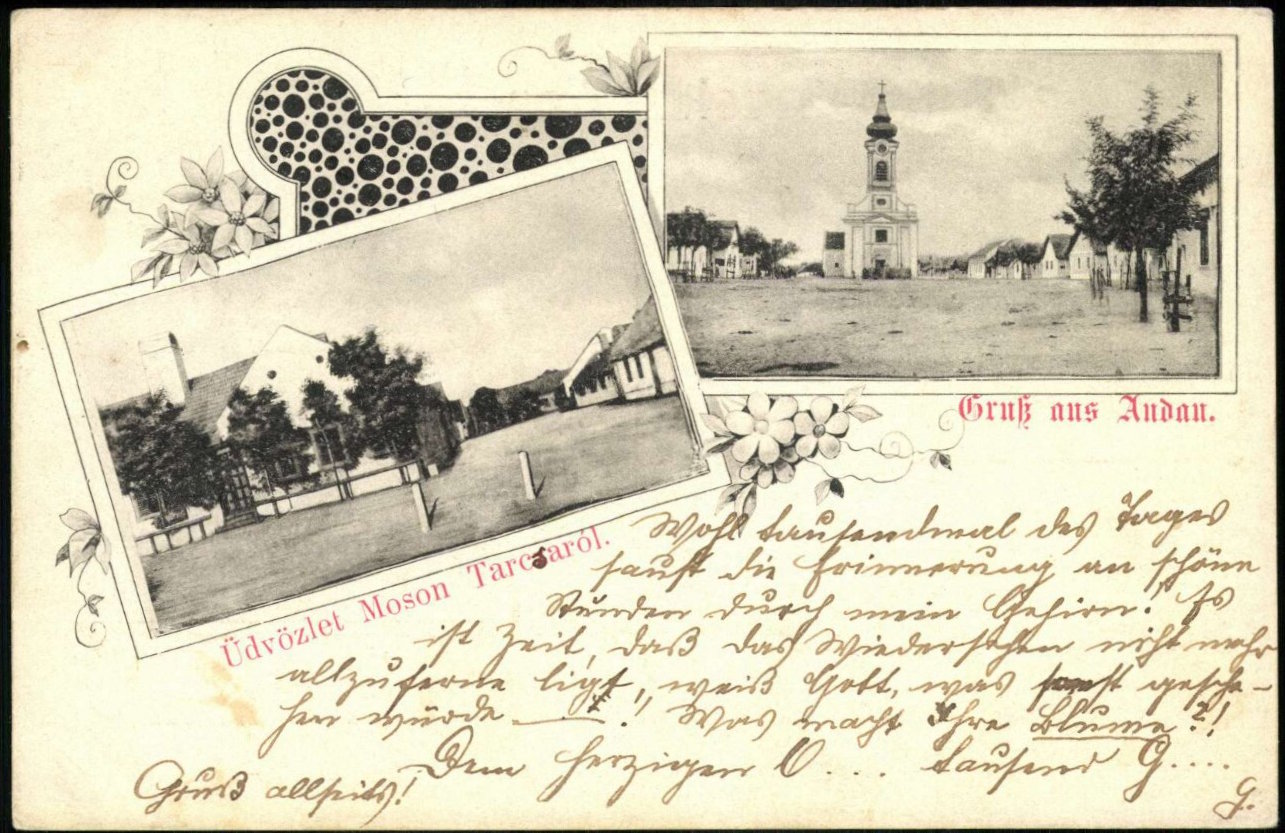 Gruß aus Andau.
Üdvözlet Moson Tarcsaról.
Wohl tausendmal des Tages
saust die Erinnerung an schöne
Stunden durch mein Gehirn! Es
ist Zeit, daß das Wiedersehen nicht mehr
allzuferne ligt, weiß Gott, was sonst gesche-
hen würde —! Was macht Ihre Blume?!
Dem herzigen O.... tausend G.....
Gruß allseits!
G.